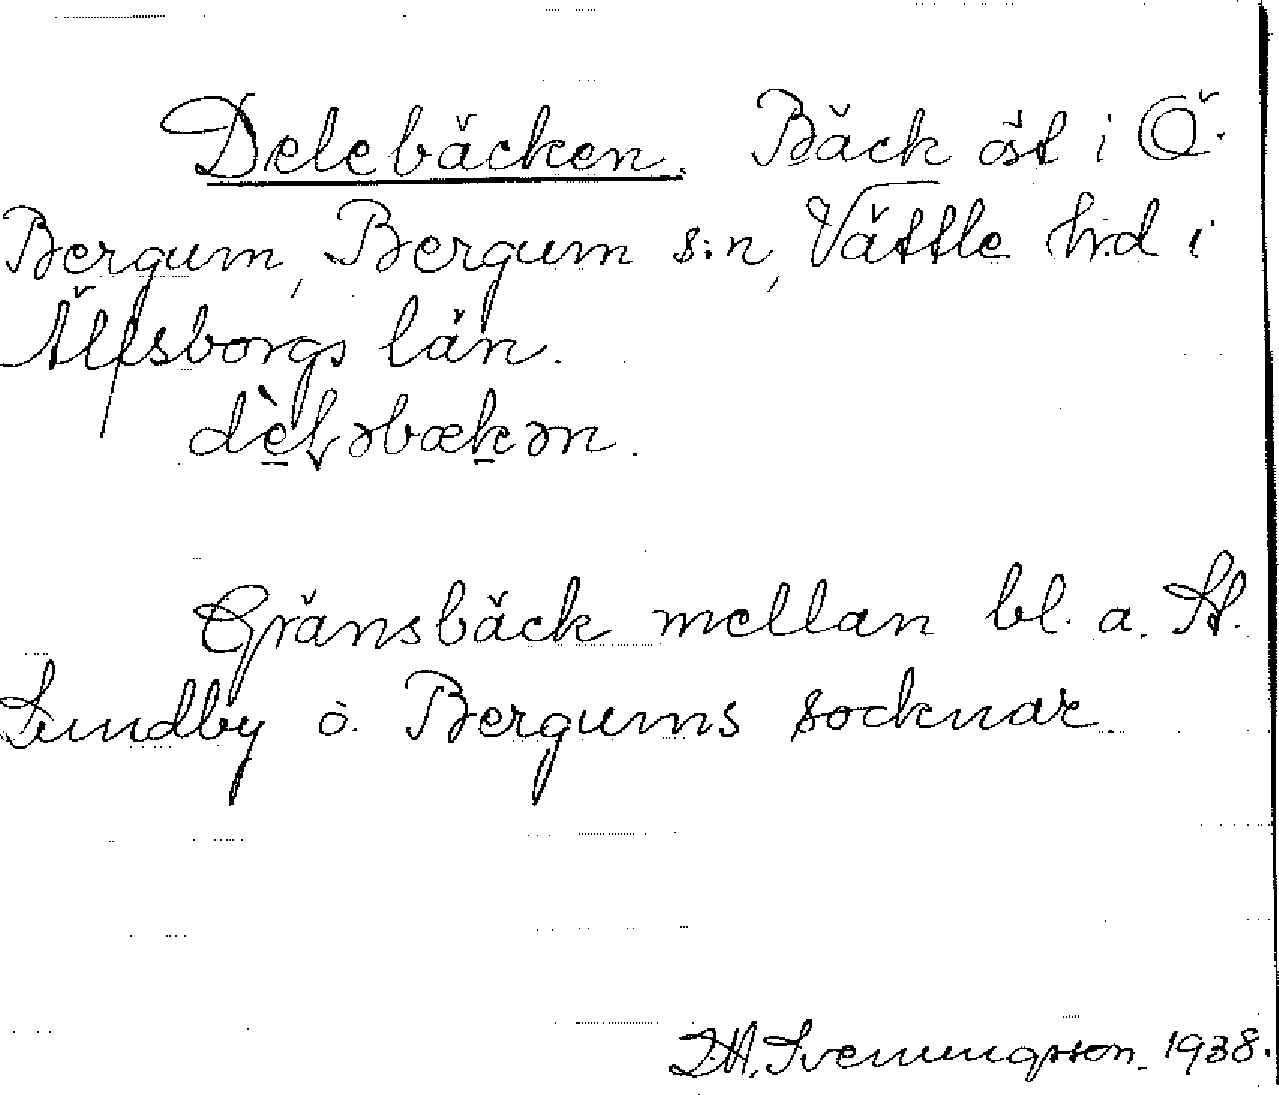 Delebäcken. Bäck öst i Ö.
Bergum, Bergum s:n, Vättle h:d i
Älfsborgs län.
dèḷəbækən.
Gränsbäck mellan bl. a. St.
Lundby o. Bergums socknar.
Svenungsson. 1938.